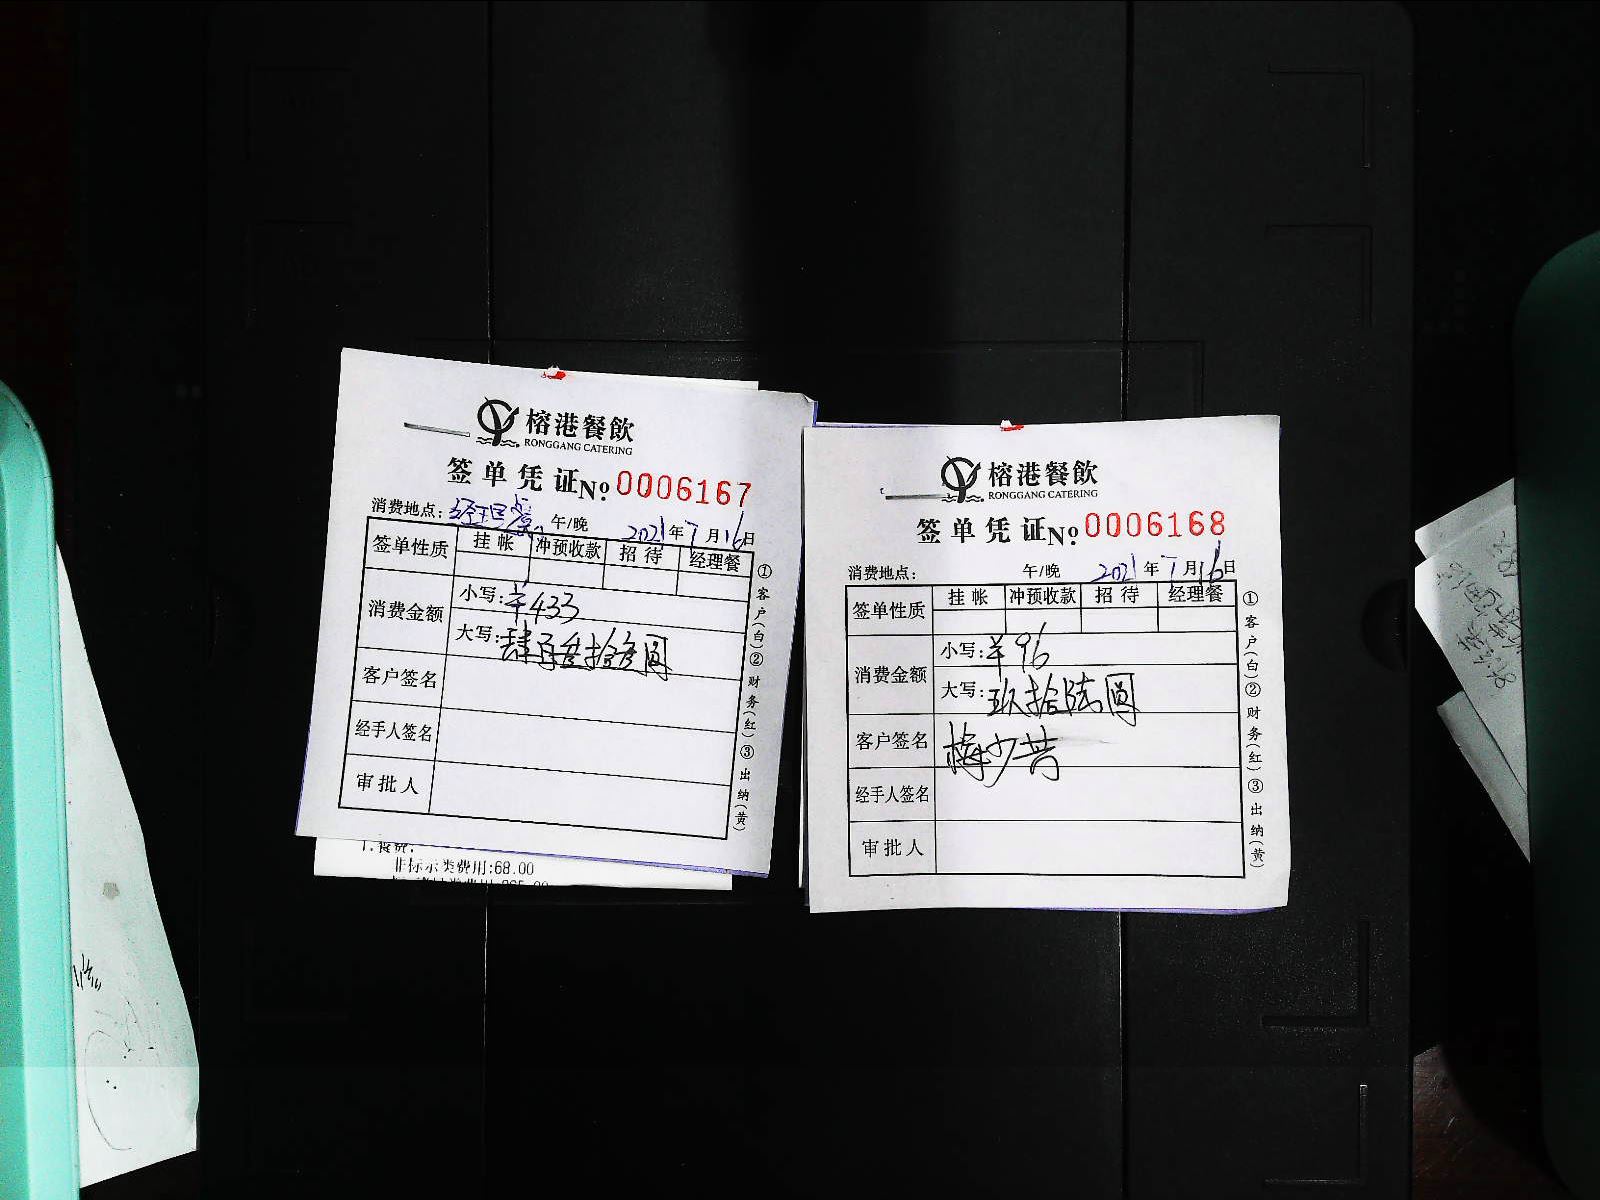 榕港餐飲
RONGGANG CATERING
签单凭证No 0006167
消费地点: 经理餐 午/晚 2021年7月16日
签单性质 挂帐 冲预收款 招待 经理餐
消费金额 小写:¥433
大写:肆百叁拾叁圆
客户签名
经手人签名
审批人
①客户(白)②财务(红)③出纳(黄)
非标示类费用:68.00
榕港餐飲
RONGGANG CATERING
签单凭证No 0006168
消费地点: 午/晚 2021年7月16日
签单性质 挂帐 冲预收款 招待 经理餐
消费金额 小写:¥96
大写:玖拾陆圆
客户签名 梅少芳
经手人签名
审批人
①客户(白)②财务(红)③出纳(黄)